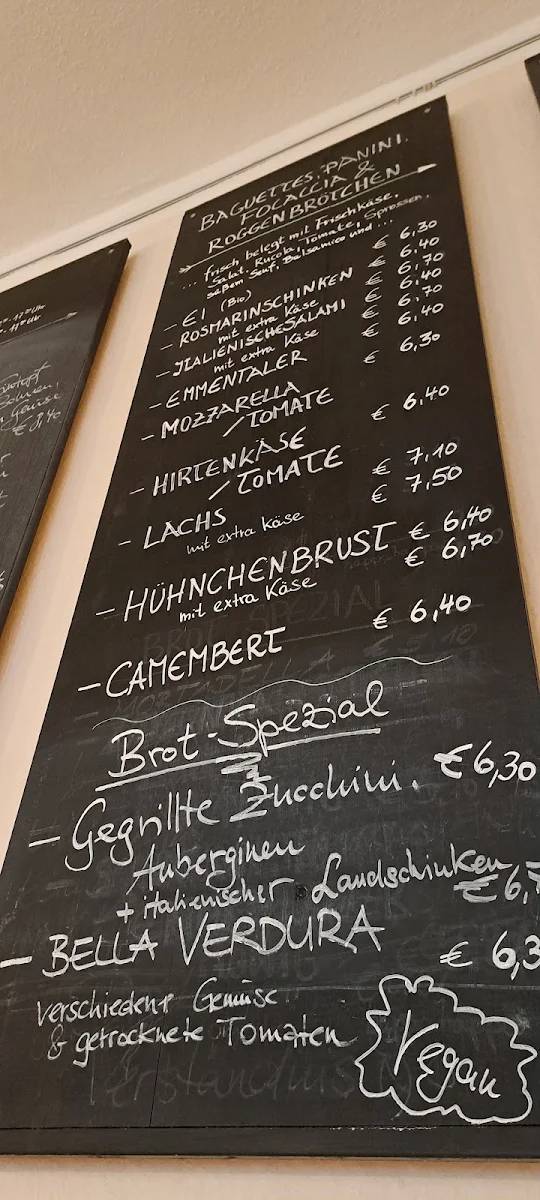 BAGUETTES, PANINI,
FOCACCIA &
ROGGENBRÖTCHEN
... frisch belegt mit Frischkäse,
Salat, Rucola, Tomate, Sprossen,
süßem Senf, Balsamico und ...
- EI (Bio) € 6,30
- ROSMARINSCHINKEN € 6,40
mit extra Käse € 6,70
- ITALIENISCHESALAMI € 6,40
mit extra Käse € 6,70
- EMMENTALER € 6,40
- MOZZARELLA € 6,30
/TOMATE
- HIRTENKÄSE € 6,40
/TOMATE
- LACHS € 7,10
mit extra Käse € 7,50
- HÜHNCHENBRUST € 6,40
mit extra Käse € 6,70
- CAMEMBERT € 6,40
Brot-Spezial
- Gegrillte Zucchini, € 6,30
Auberginen
+ italienischer Landschinken € 6,7
- BELLA VERDURA € 6,3
verschiedene Gemüse
& getrocknete Tomaten
Vegan